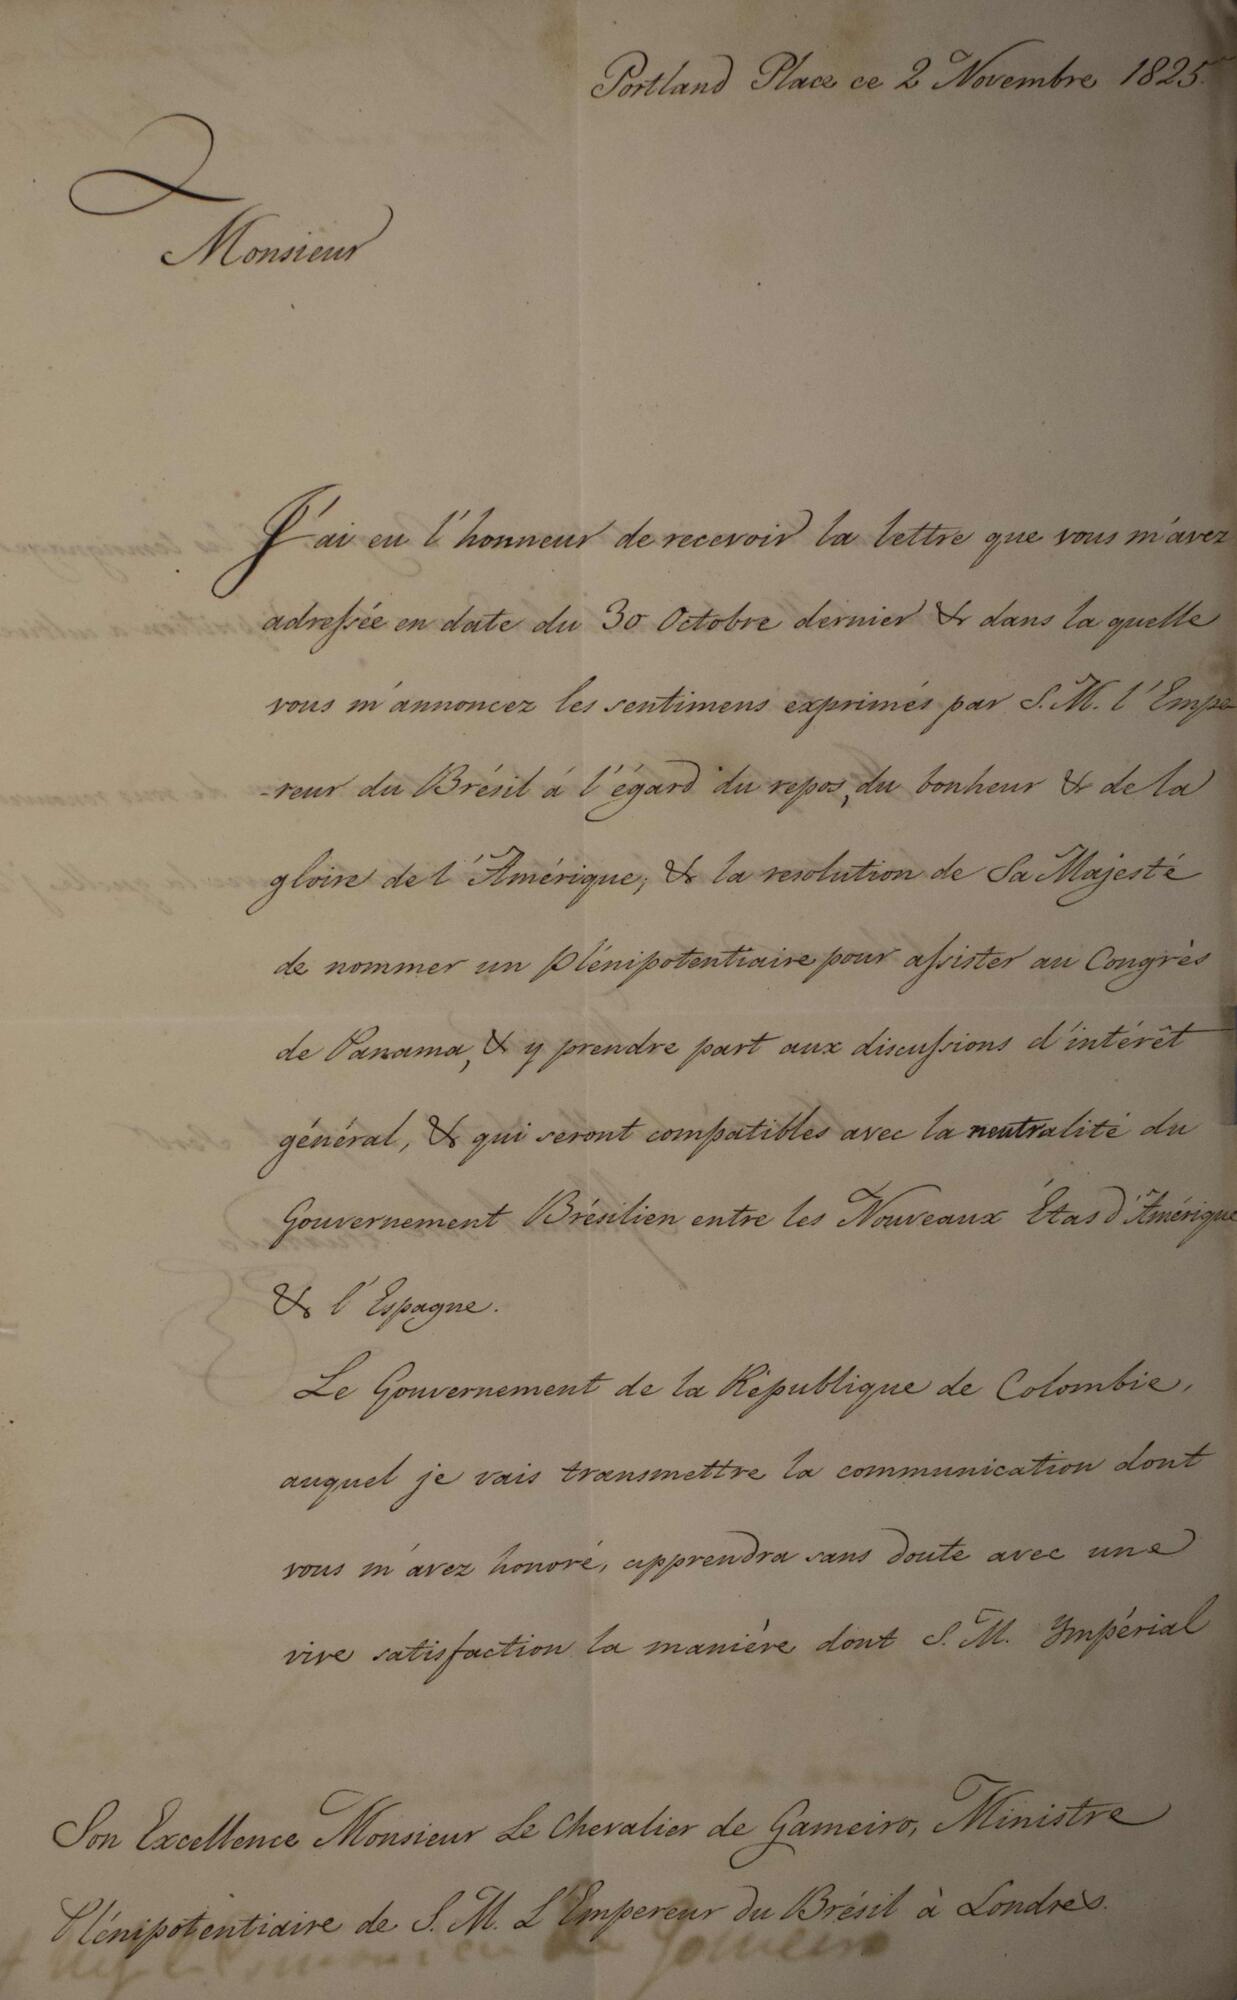 Portland Place ce 2 Novembre 1825.
Monsieur
J'ai eu l'honneur de recevoir la lettre que vous m'avez
adressée en date du 30 Octobre dernier & dans la quelle
vous m'annoncez les sentimens exprimés par S. M. l'Empe
-reur du Brésil à l'égard du repos, du bonheur & de la
gloire de l'Amérique; & la resolution de Sa Majesté
de nommer un plénipotentiaire pour assister au Congrès
de Panama, & y prendre part aux discussions d'intérêt
général, & qui seront compatibles avec la neutralité du
Gouvernement Brésilien entre les Nouveaux Étas d'Amérique
& l'Espagne.
Le Gouvernement de la République de Colombie,
auquel je vais transmettre la communication dont
vous m'avez honoré, apprendra sans doute avec une
vive satisfaction la manière dont S. M. Ympérial
Son Excellence Monsieur Le Chevalier de Gameiro, Ministre
Plénipotentiaire de S. M. L'Empereur du Brésil à Londres.